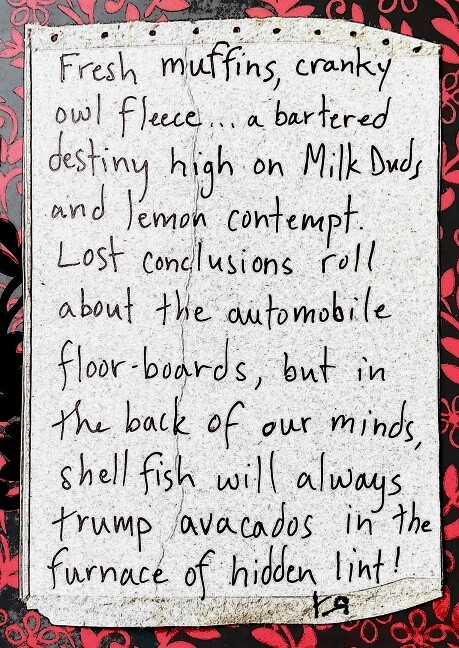 Fresh muffins, cranky
owl fleece... a bartered
destiny high on Milk Duds
and lemon contempt.
Lost conclusions roll
about the automobile
floor-boards, but in
the back of our minds,
shell fish will always
trump avacados in the
furnace of hidden lint!